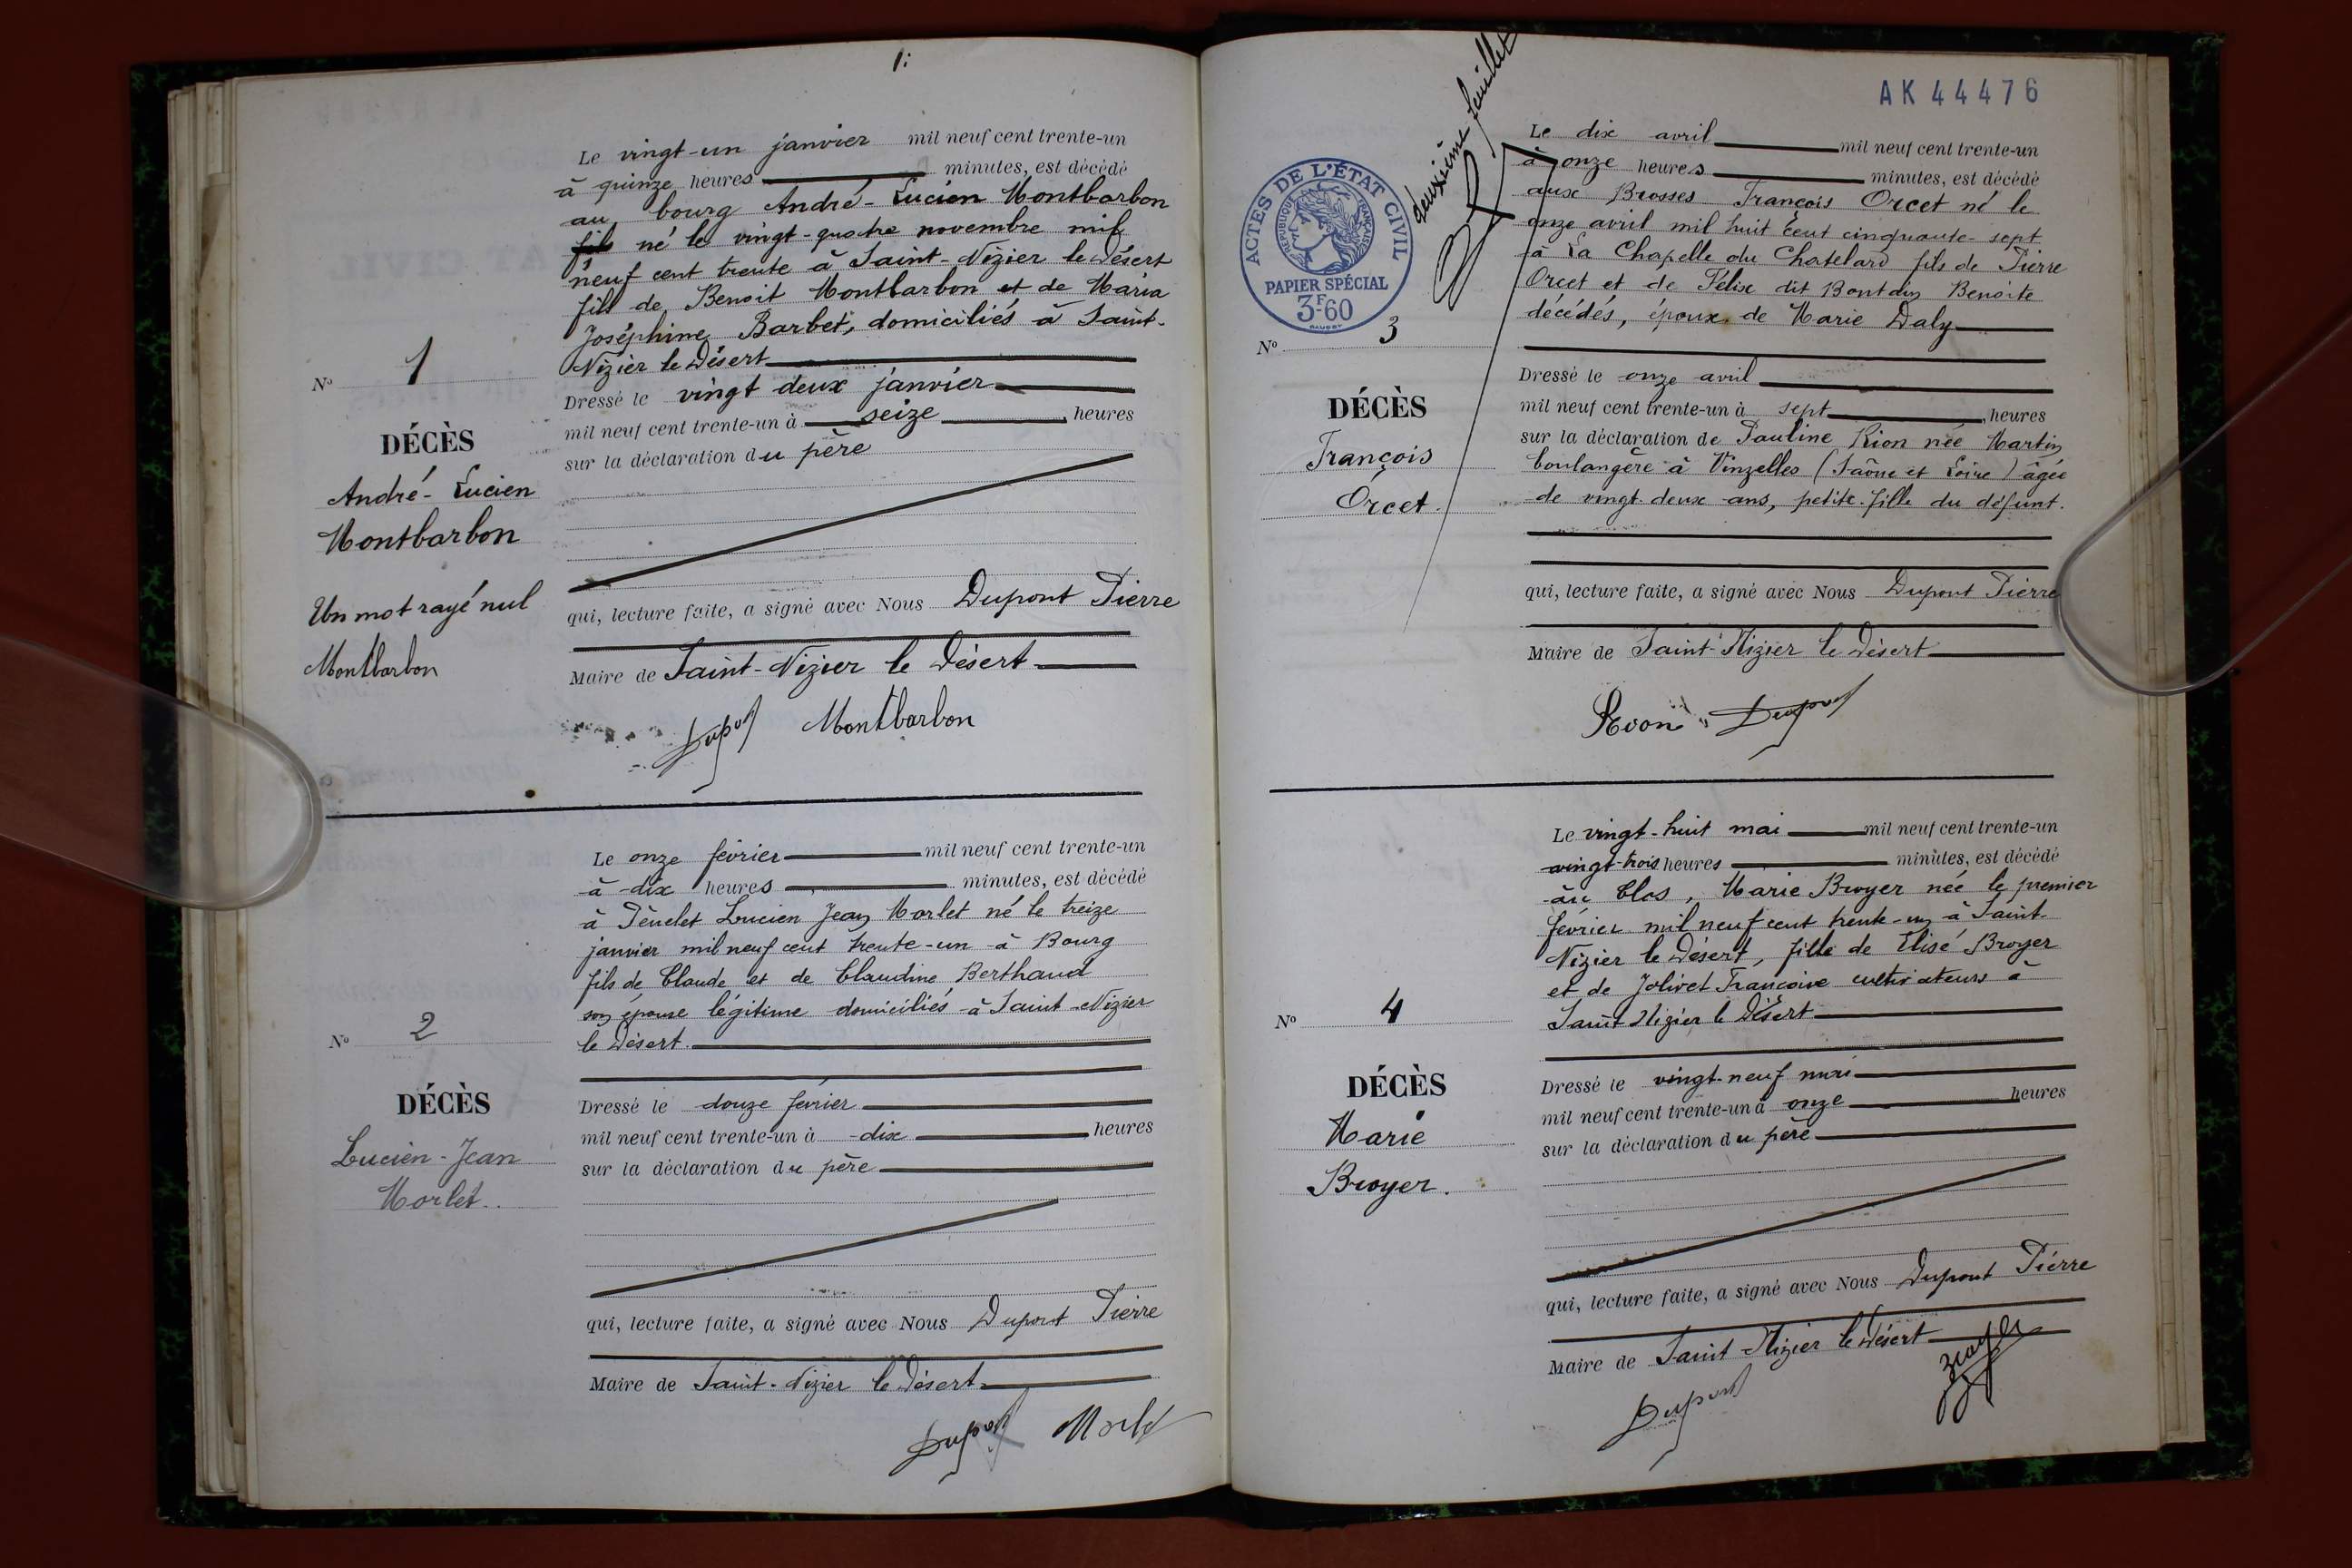 1:
Le vingt-un janvier mil neuf cent trente-un
à quinze heures minutes, est décédé
au bourg André-Lucien Montbarbon
fils né le vingt-quatre novembre mil
neuf cent trente à Saint-Nizier le Désert
fils de Benoit Montbarbon et de Maria
Joséphine Barbet, domiciliés à Saint-
Nizier le Désert
Dressé le vingt deux janvier
mil neuf cent trente-un à seize heures
sur la déclaration du père
qui, lecture faite, a signé avec Nous Dupont Pierre
Maire de Saint-Nizier le Désert
Dupont Montbarbon
No 1
DÉCÈS
André-Lucien
Montbarbon
Un mot rayé nul
Montbarbon
Le onze février mil neuf cent trente-un
à dix heures minutes, est décédé
à Lucien Jean Morlet né le treize
janvier mil neuf cent trente-un à Bourg
fils de Claude et de Claudine Berthaud
son épouse légitime domiciliés à Saint-Nizier
le Désert.
Dressé le douze février
mil neuf cent trente-un à dix heures
sur la déclaration du père
qui, lecture faite, a signé avec Nous Dupont Pierre
Maire de Saint-Nizier le Désert
Dupont Morlet
No 2
DÉCÈS
Lucien-Jean
Morlet.
deuxième feuillet
AK 44476
ACTES DE L'ÉTAT CIVIL
RÉPUBLIQUE FRANÇAISE
PAPIER SPÉCIAL
3F60
No 3
DÉCÈS
François
Orcet.
Le dix avril mil neuf cent trente-un
à onze heures minutes, est décédé
aux Brosses François Orcet né le
onze avril mil huit cent cinquante-sept
à La Chapelle du Chatelard fils de Pierre
Orcet et de Félix dit Benoite
décédés, époux de Marie Daly
Dressé le onze avril
mil neuf cent trente-un à sept heures
sur la déclaration de Pauline Rion née Martin
boulangère à Vinzelles (Saône et Loire) âgée
de vingt-deux ans, petite-fille du défunt.
qui, lecture faite, a signé avec Nous Dupont Pierre
Maire de Saint-Nizier le Désert
Dupont
Le vingt-huit mai mil neuf cent trente-un
vingt-trois heures minutes, est décédé
au Clos, Marie Broyer née le premier
février mil neuf cent trente-un à Saint-
Nizier le Désert, fille de Elisé Broyer
et de Jolivet Françoise cultivateurs à
Saint Nizier le Désert
Dressé le vingt-neuf mai
mil neuf cent trente-un à onze heures
sur la déclaration du père
qui, lecture faite, a signé avec Nous Dupont Pierre
Maire de Saint-Nizier le Désert
Dupont
No 4
DÉCÈS
Marie
Broyer.